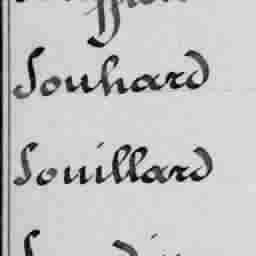 Souhard
Souillard